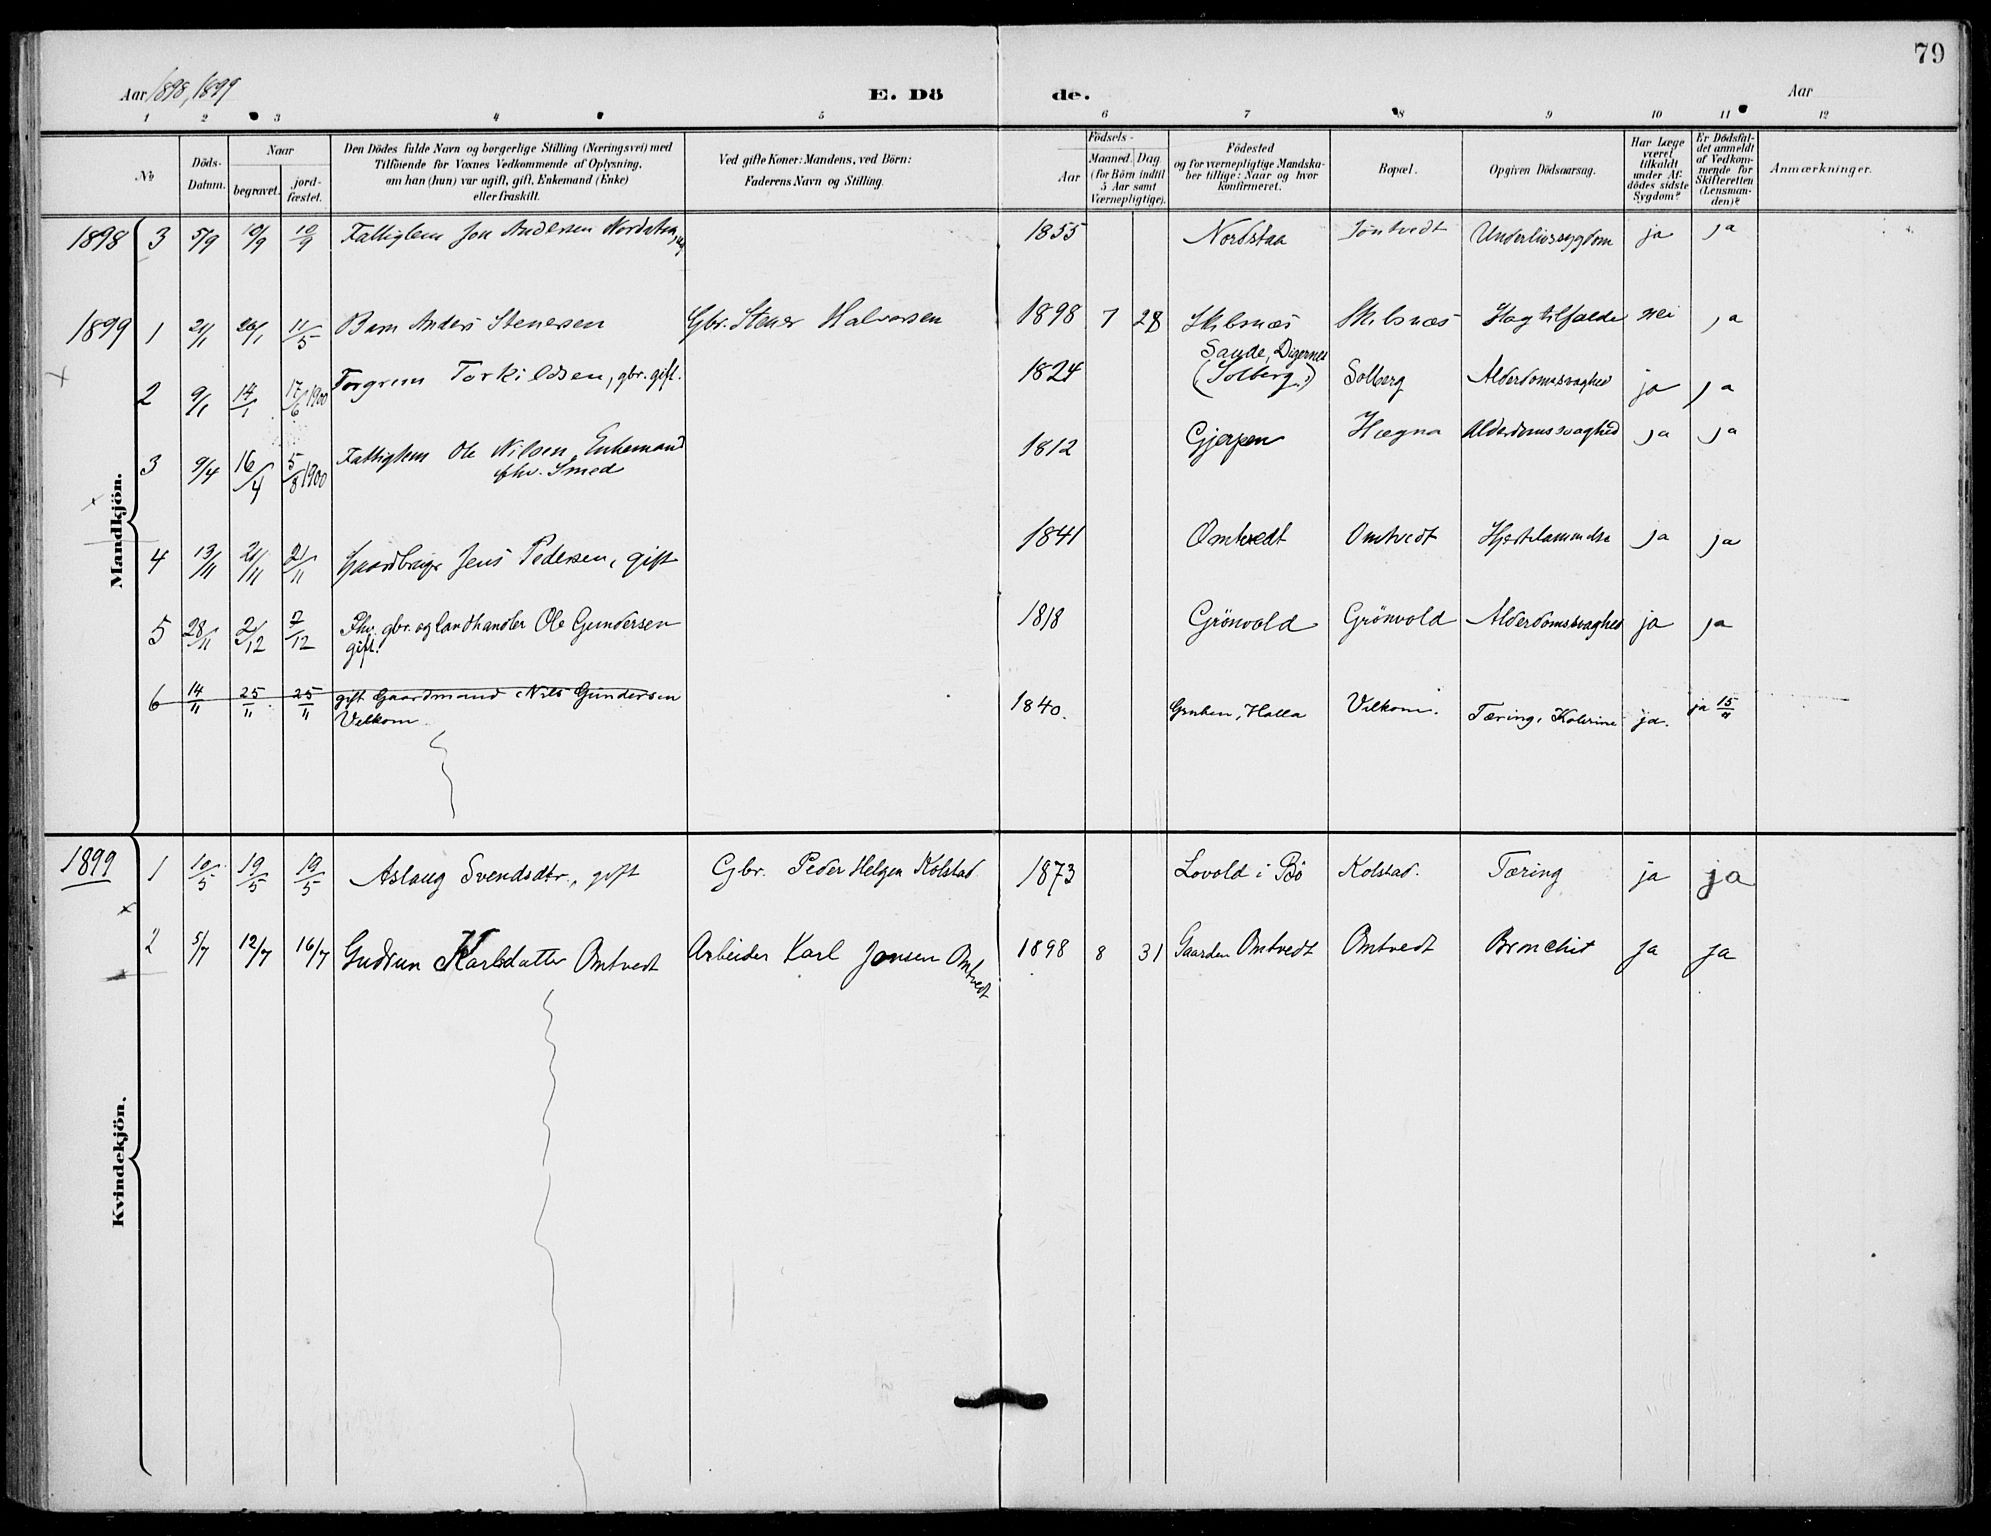 79
Aar 1898, 1899
E. Dö de.
Aar
1 2 3 4 5 6 7 8 9 10 11 12
№
Döds-Datum.
Naar
begravet.
jord-fæstet.
Den Dödes fulde Navn og borgerlige Stilling (Næringsvei) med
Tilföiende for Voxnes Vedkommende af Oplysning,
om han (hun) var ugift, gift, Enkemand (Enke)
eller fraskilt.
Ved gifte Koner: Mandens, ved Börn:
Faderens Navn og Stilling.
Födsels-
Aar
Maaned. Dag
(for Börn indtil
5 Aar samt
Værnepligtige).
Födested
og for værnepligtige Mandska-
ber tillige: Naar og hvor
konfirmeret.
Bopæl.
Opgiven Dödsaarsag.
Har Læge
været
tilkaldt
under Af-
dödes sidste
Sygdom?
Er Dödsfal-
det anmeldt
af Vedkom-
mende for
Skifteretten
(Lensman-
den)?
Anmærkninger.
Mandkjön.
1898 3 5/9 10/9 10/9 Fattiglem Jon Andersen 1855 Nordstaa Underlivssygdom ja ja
1899 1 21/1 26/1 11/5 Barn Anders Stenersen Gbr. Stener Halvorsen 1898 7 28 Skibsnæs Skibsnæs Slagtilfælde nei ja
2 9/1 14/1 17/6 1900 Torgrim Torkildsen, gbr. gift. 1824 Sande, Digernes
(Solberg?) Solberg Alderdomssvaghed ja ja
3 9/4 16/4 5/8 1900 Fattiglem Ole Nilsen, Enkemand
fhv. Smed 1812 Gjerpen Hægna Alderdomssvaghed ja ja
4 13/11 21/11 21/11 Gaardbruger Jens Pedersen, gift 1841 Omtvedt Omtvedt ja ja
5 28/11 2/12 2/12 Fhv. gbr. og landhandler Ole Gundersen
gift. 1818 Grönvold Grönvold Alderdomssvaghed ja ja
6 14/11 25/11 25/11 gift Gaardmand Nils Gundersen
Velkom 1840. Gruben, Holla Velkom. Tæring, ja. ja 15/11
Kvindekjön.
1899 1 10/5 19/5 19/5 Aslaug Svendsdtr., gift Gbr. Peder Helgen Kolstad. 1873 Lovold i Bö Kolstad. Tæring ja ja
2 5/7 12/7 16/7 Gudrun Karlsdatter Omtvedt Arbeider Karl Jensen Omtvedt 1898 8 31 Gaarden Omtvedt Omtvedt Bronchit ja ja